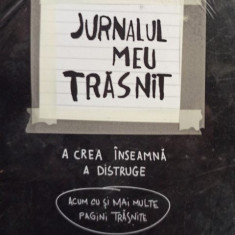 JURNALUL
MEU
TRĂSNIT
A CREA ÎNSEAMNĂ
A DISTRUGE
ACUM CU ȘI MAI MULTE
PAGINI TRĂSNITE